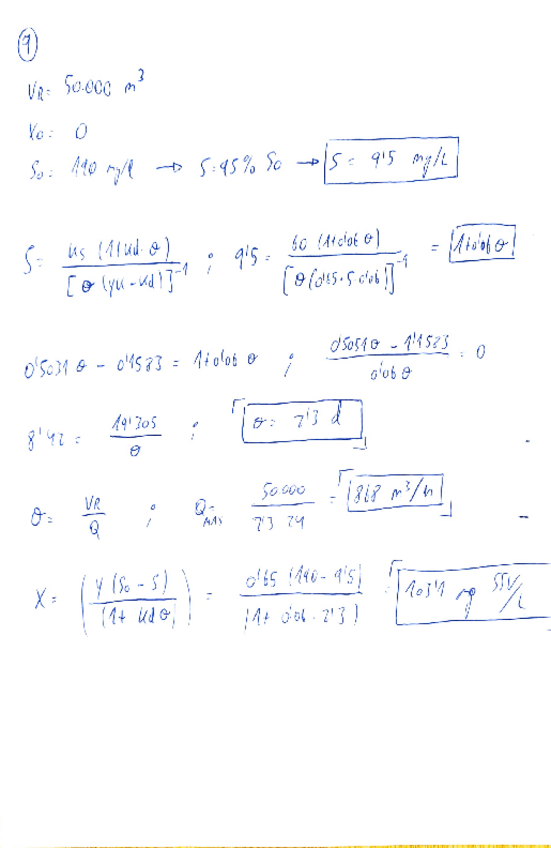 9
VR= 50.000 m³
X0= 0
S0= 190 mg/l → S=95% S0 → S= 9'5 mg/L
S= ks (1+kd·θ) / [θ (yu-kd)]⁻¹ ; 9'5 = 60 (1+0'06 θ) / [θ(0'65·5 0'06)]⁻¹ = 1+0'06 θ
0'5031 θ - 0'1583 = 1+0'06 θ ; 0'5051θ - 1'1583 / 0'06 θ = 0
8'42 = 19'305 / θ ; θ= 2'3 d
θ= VR / Q ; Q= MAX 50000 / 2'3 24 = 868 m³/h
X= (y (S0 - S) / (1+ kd θ)) = 0'65 (190-9'5) / (1+ 0'06 · 2'3) = 103'1 mg SSV/L